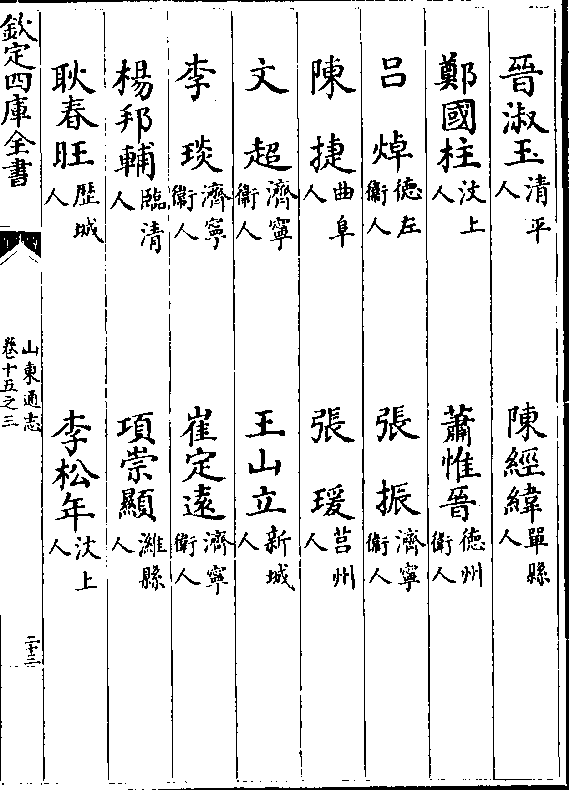 晉淑玉清平人 陳經緯單縣人
鄭國柱汶上人 蕭惟晉德州衛人
吕焯德左衛人 張振濟寧衛人
陳捷曲阜人 張瑗莒州人
文超濟寧衛人 王山立新城人
李琰濟寧衛人 崔定遠濟寧衛人
楊邦輔臨清人 項崇顯濰縣人
耿春旺歴城人 李松年汶上人
欽定四庫全書
山東通志
卷十五之三
二十三